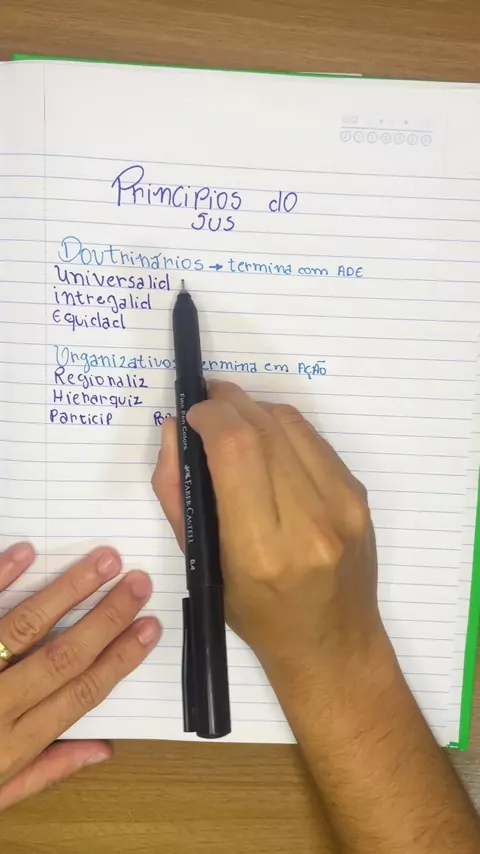 Princípios do
SUS
Doutrinários → termina com ADE
Universalid
intregalid
Equidad
Organizativos termina em AÇÃO
Regionaliz
Hierarquiz
Particip
Fine Pen Colors
FABER-CASTELL 0.4